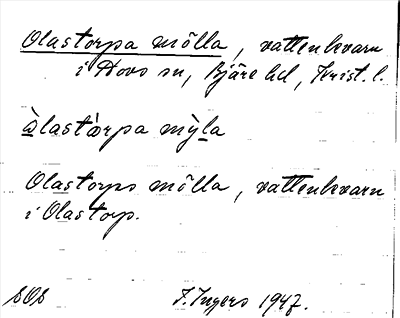 Olastorpa mölla, vattenkvarn
i Hovs sn, Bjäre hd, Krist. l.
àlastàrpa mỳla
Olastorps mölla, vattenkvarn
i Olastorp.
SOS I. Ingers 1947.